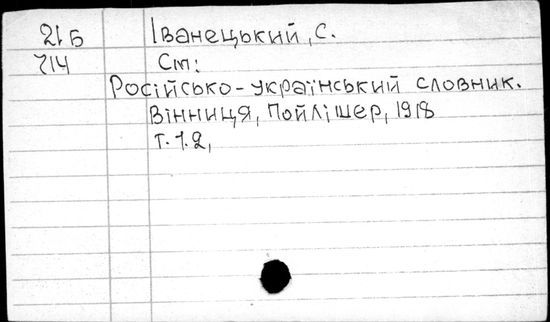 21Б Іванецький, С.
714 См:
Російсько-український словник.
Вінниця, Пойлішер, 1918
т. 1.2,